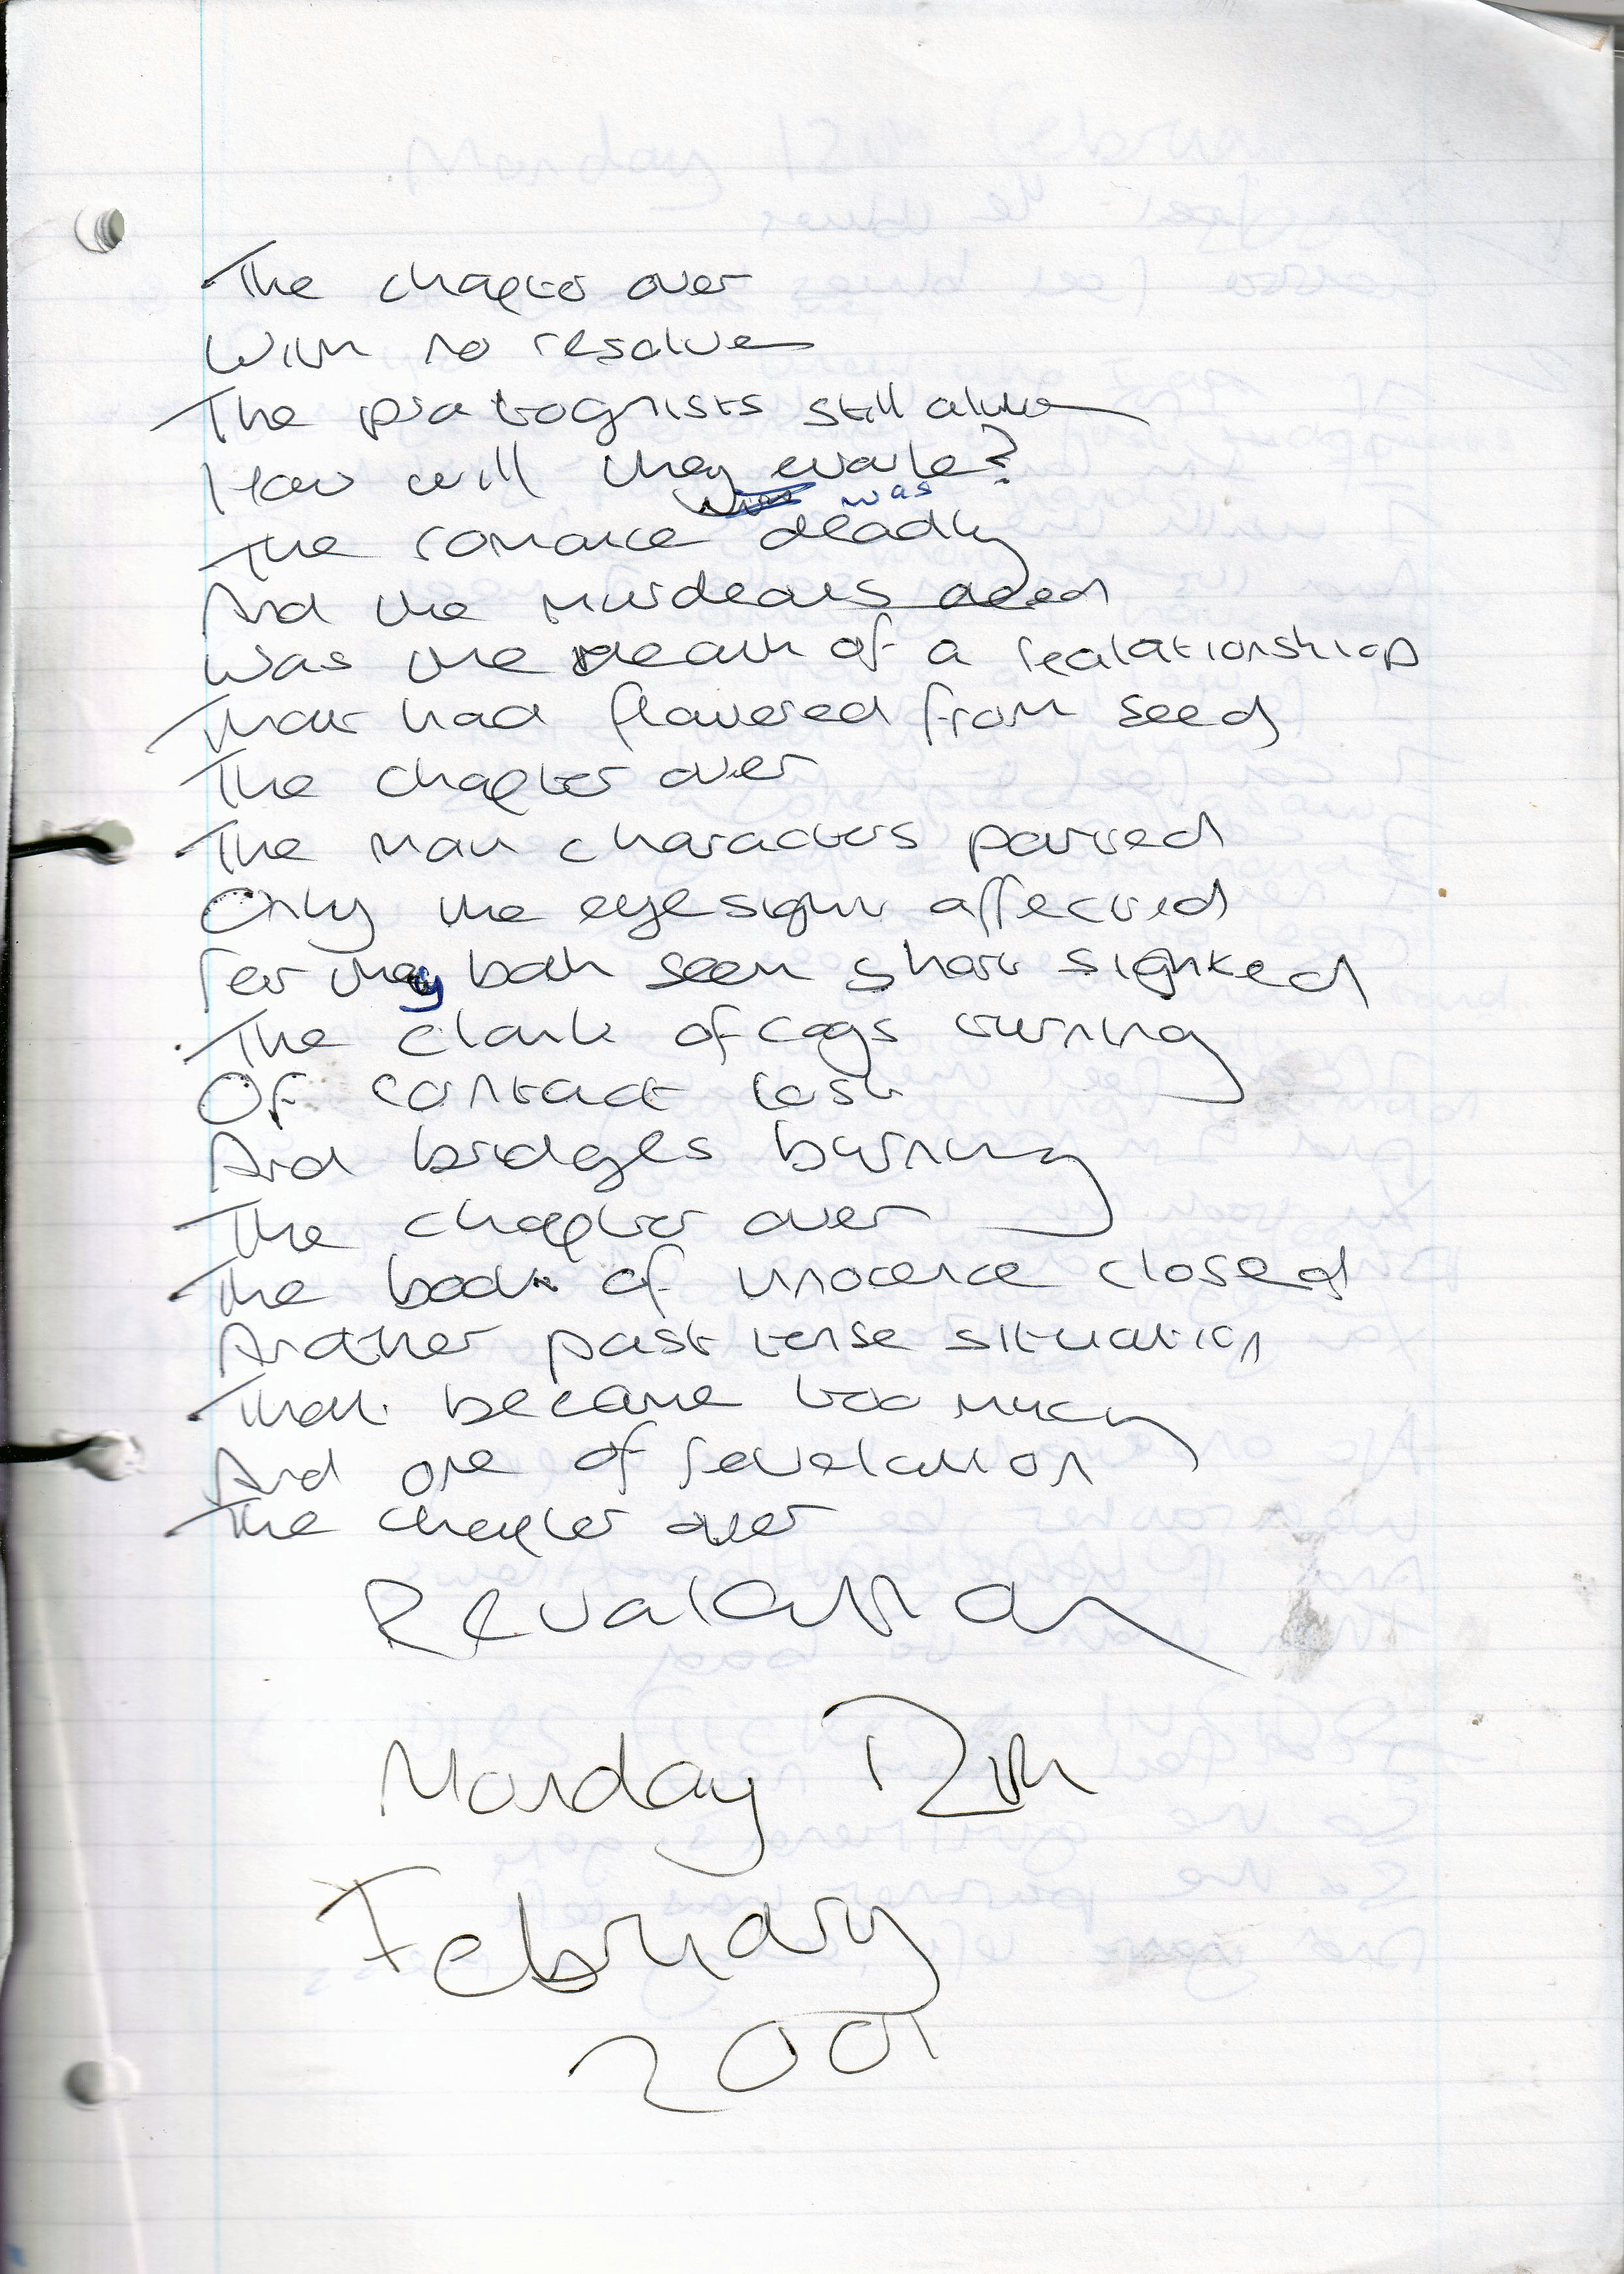 The chapter over
With no resolve
The protagnists still alive
How will they evole?
was
The romance deadly
And the murdeous deed
Was the death of a realationship
That had flowered from seed
The chapter over
The main characters parted
Only the eyesight affected
For they both seem short sighted
The clank of cogs turning
Of contact lost
And bridges burning
The chapter over
The book of inocence closed
Another past tense situation
That became too much
And one of revelation
The chapter over
Revalation
Monday 12th
February
2001